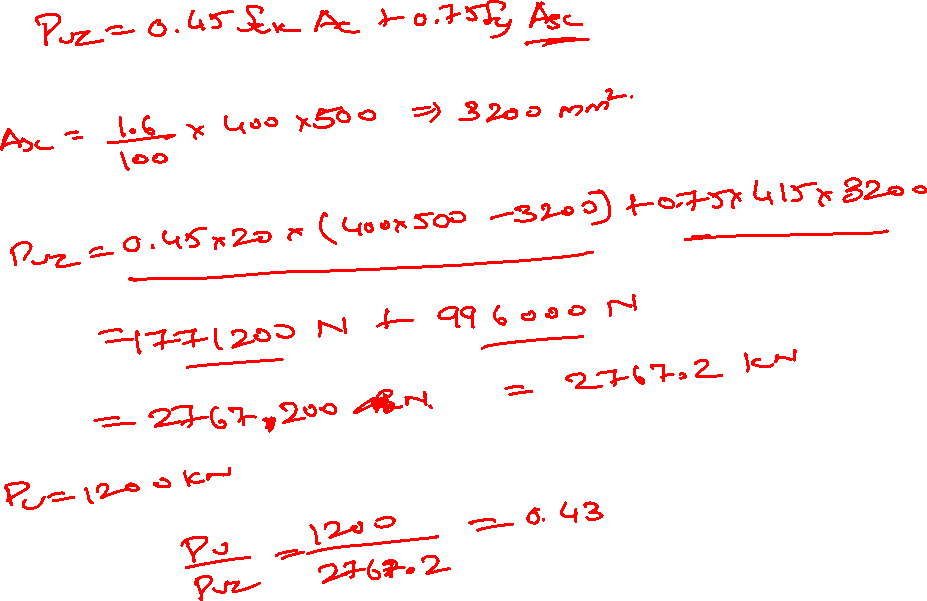 Puz = 0.45 fck Ac + 0.75fy Asc
Asc = 1.6/100 x 400 x500 => 3200 mm².
Puz = 0.45x20 x (400x500 - 3200) + 0.75x 415x 3200
= 1771200 N + 996000 N
= 2767,200 N = 2767.2 kN
Pu = 1200 kN
Pu/Puz = 1200/2767.2 = 0.43